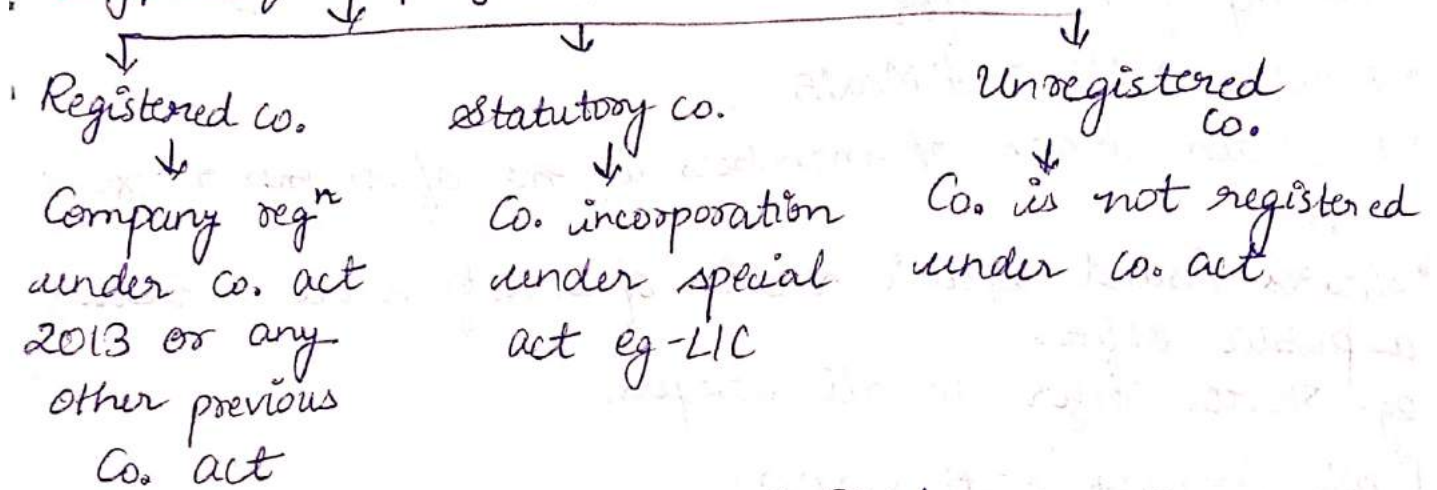 Registered co.
Company regⁿ
under co. act
2013 or any
other previous
Co. act
Statutory co.
Co. incorporation
under special
act eg-LIC
Unregistered
co.
Co. is not registered
under co. act